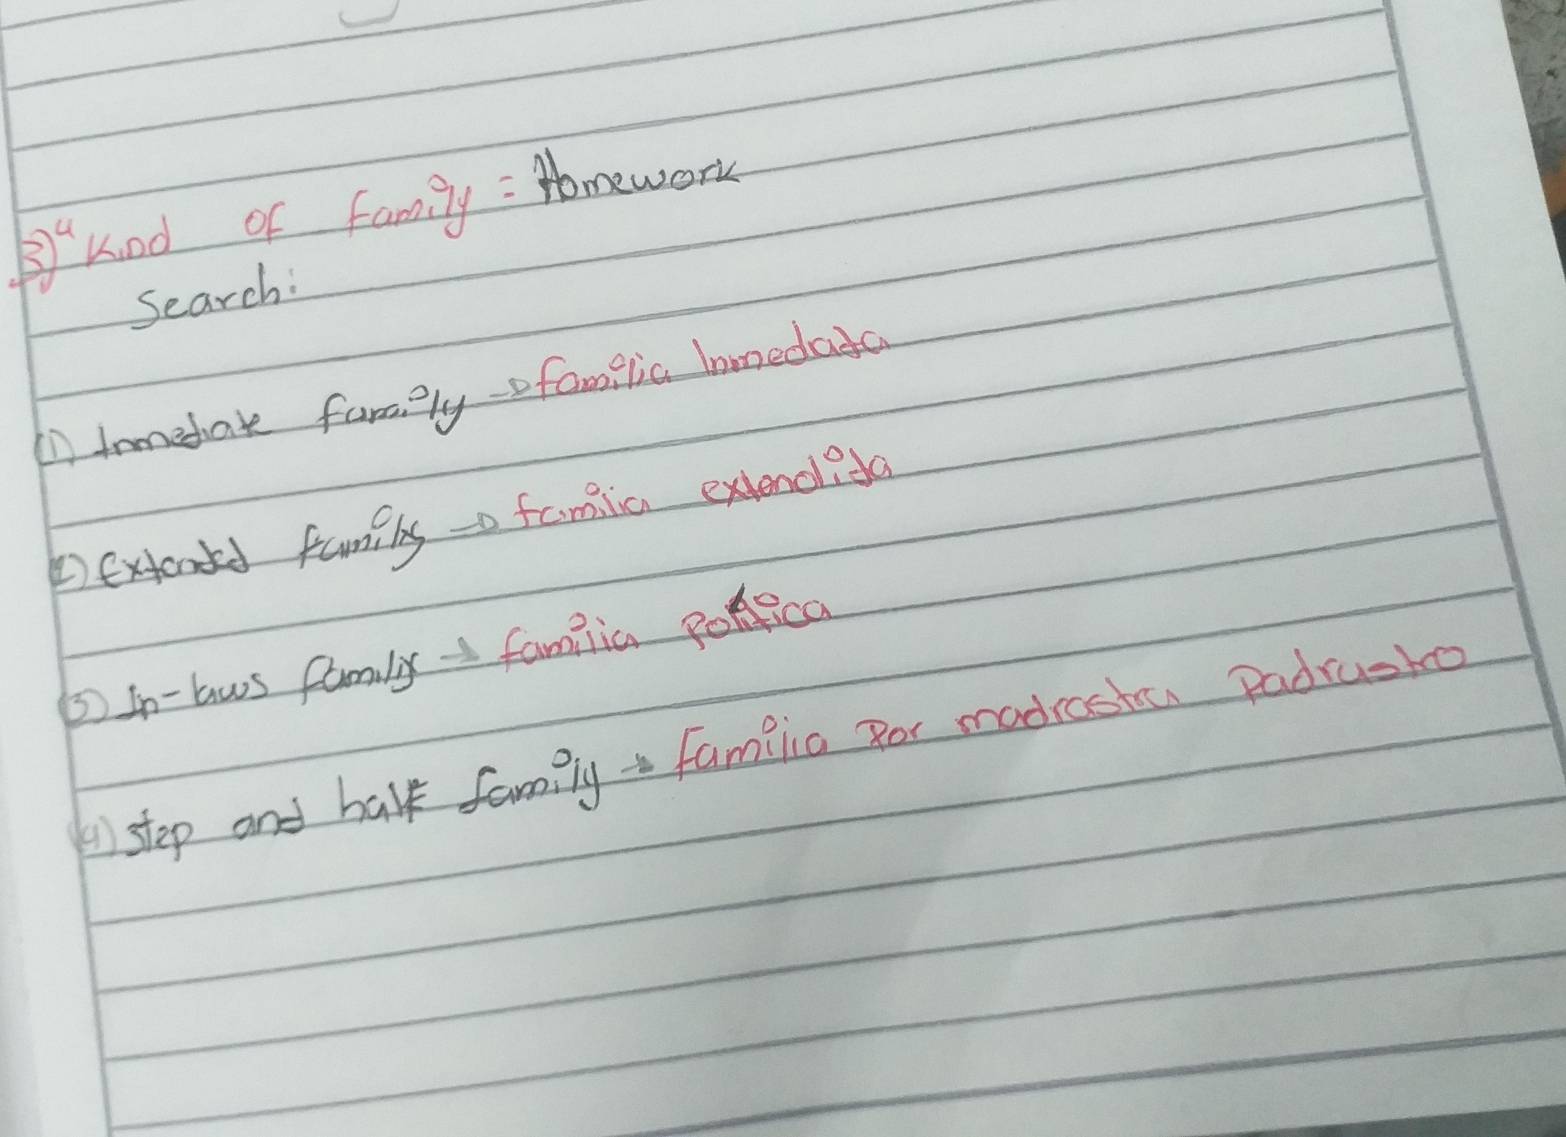 3) "Kind of family = Homework
Search:
(1) Inmediate family → familia Inmediata
(2) Extended family → familia extendida
(3) In-laws family → familia Politica
(4) step and half family → Familia Por madrastra Padrastro